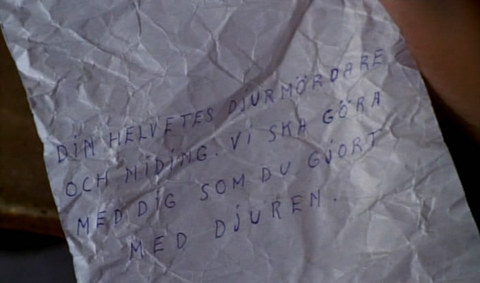 DIN HELVETES DJURMÖRDARE
OCH NIDING. VI SKA GÖRA
MED DIG SOM DU GJORT
MED DJUREN.